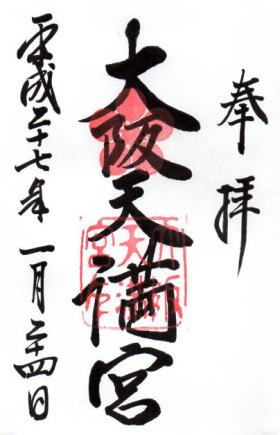 奉拝
大阪天満宮
平成二十七年一月二十四日